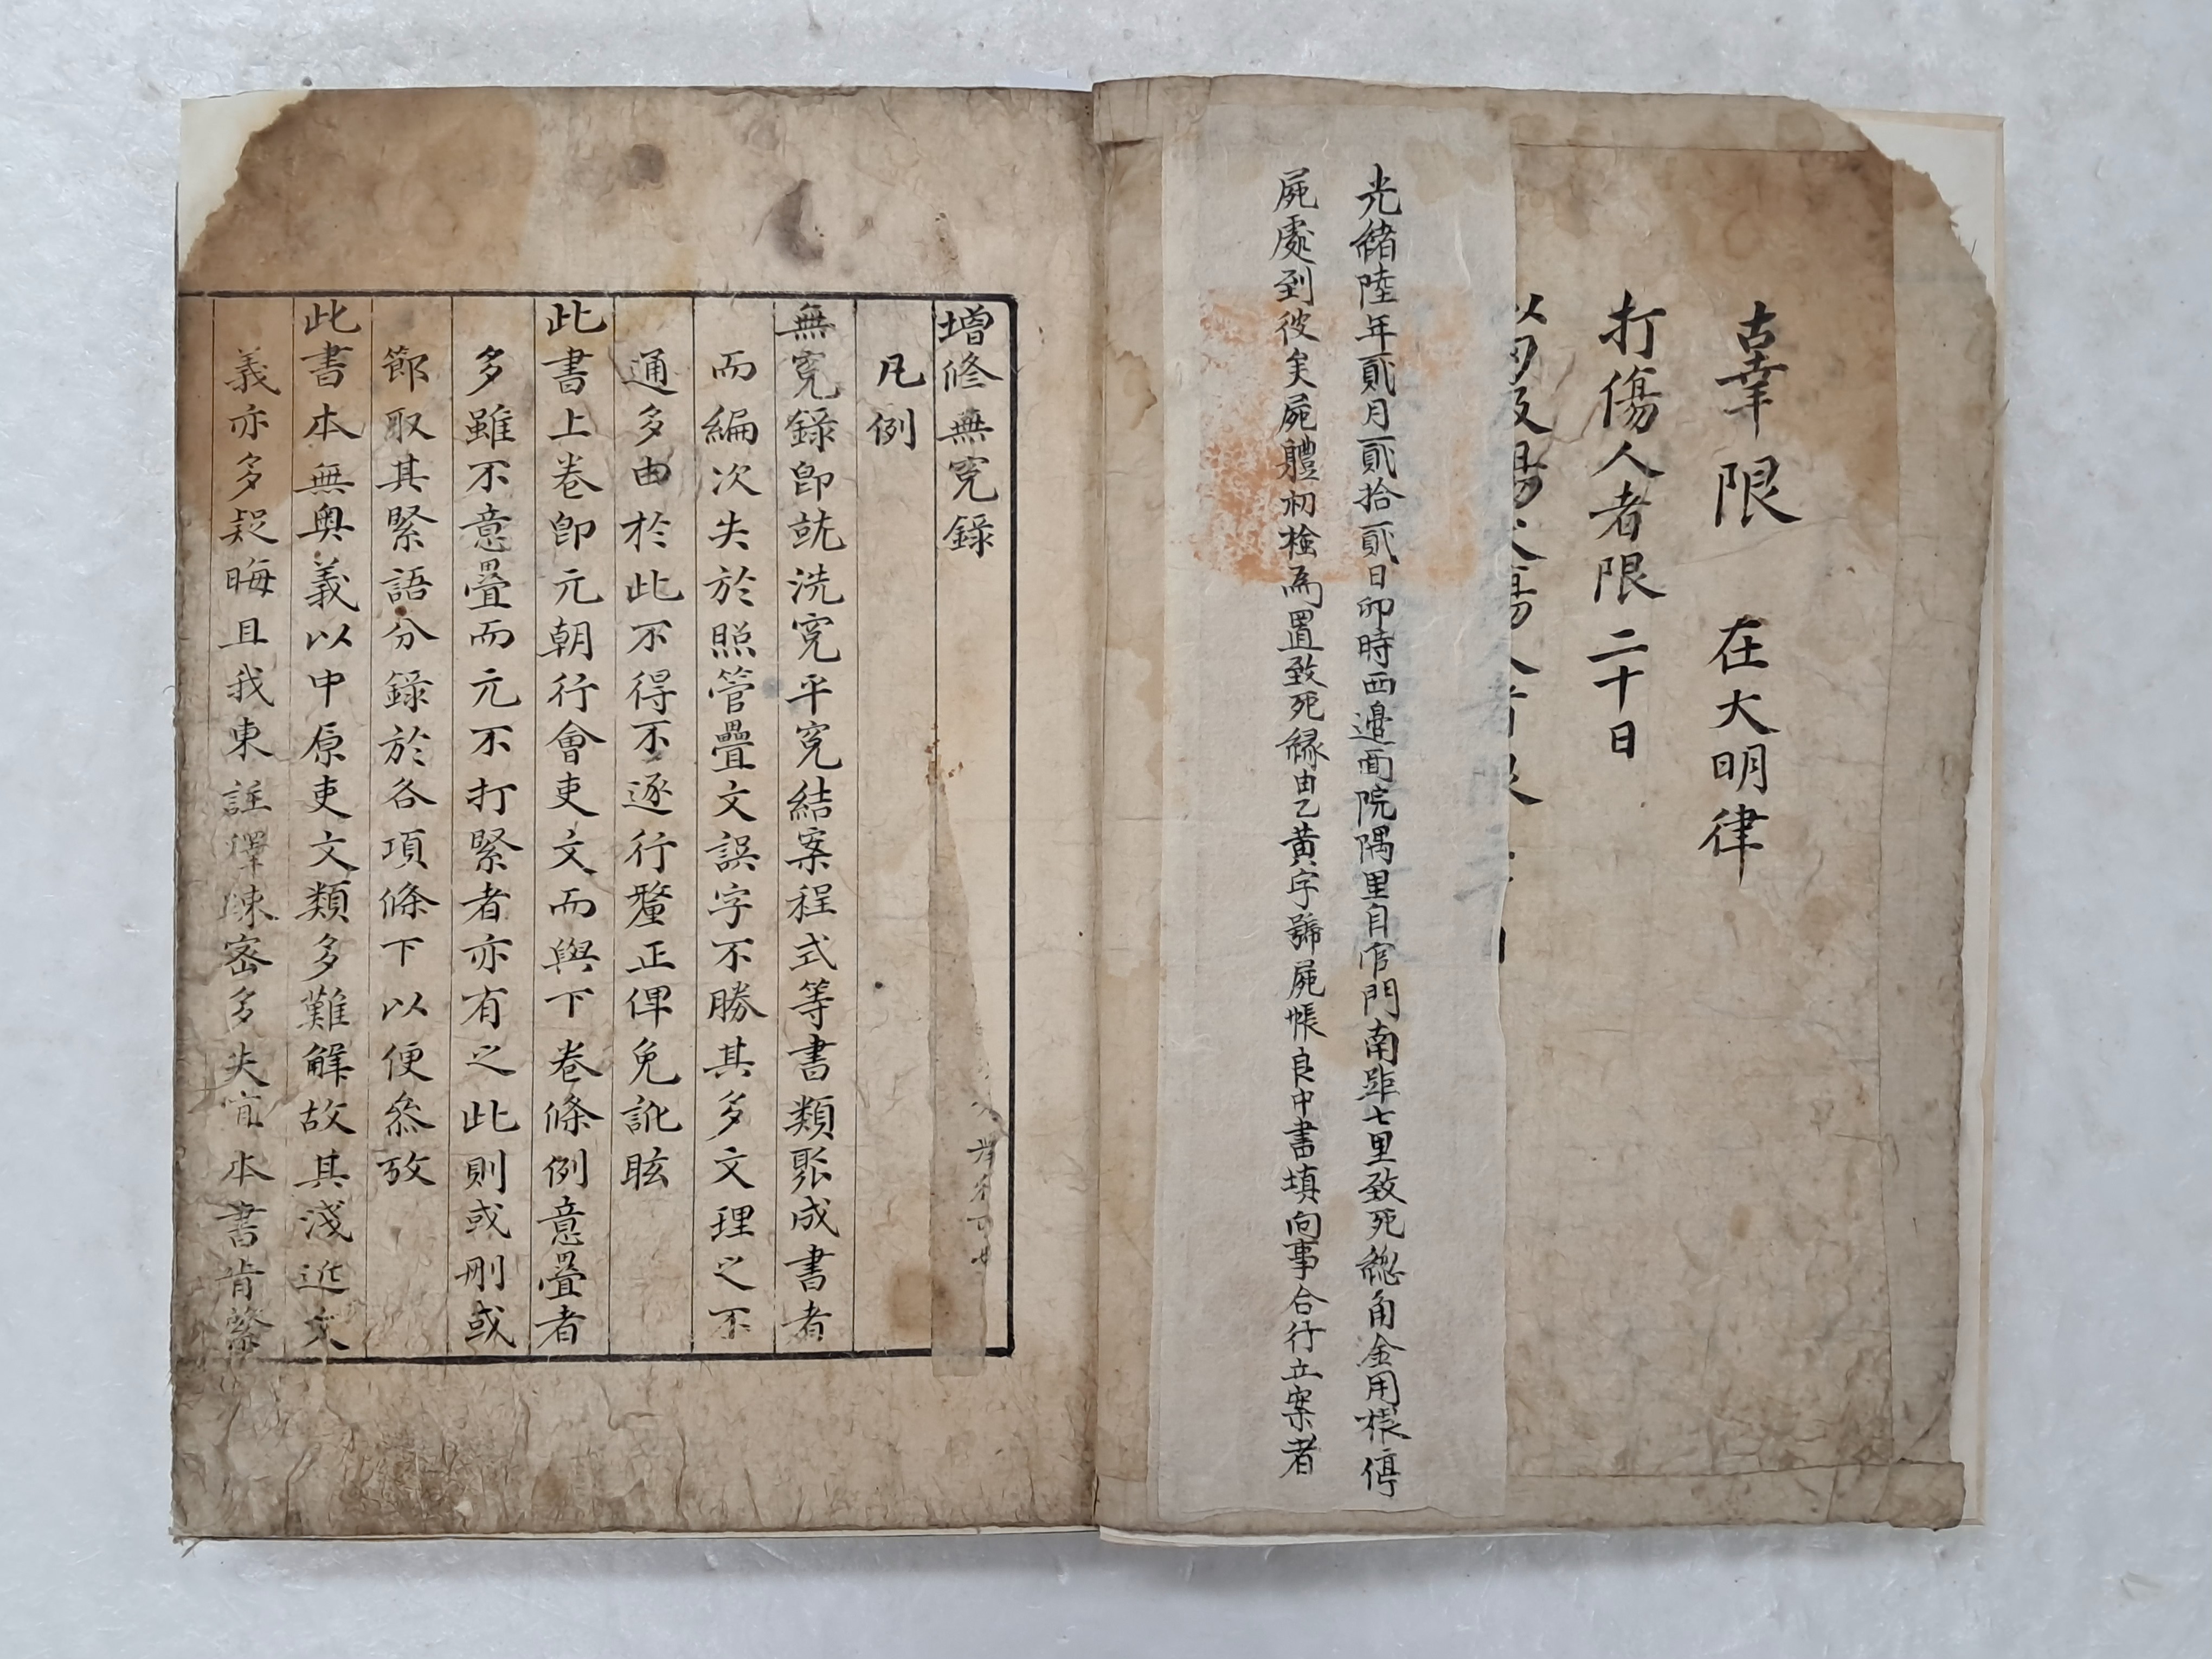 辜限　在大明律
打傷人者限二十日
光緖陸年貳月貳拾貳日卯時西邉面院隅里自官門南距七里致死總角金用根停
屍處到彼矣屍體初檢爲置致死緣由乙黃字號屍帳良中書塡向事合行立案者
增修無寃錄
凡例
無寃錄卽就洗寃平寃結案程式等書類聚成書者
而編次失於照管疊文誤字不勝其多文理之不
通多由於此不得不逐行釐正俾免訛眩
此書上卷卽元朝行會吏文而與下卷條例意疊者
多雖不意疊而元不打緊者亦有之此則或刪或
節取其緊語分錄於各項條下以便叅攷
此書本無奧義以中原吏文類多難解故其淺近文
義亦多疑晦且我東註釋踈密多失宜本書肯綮